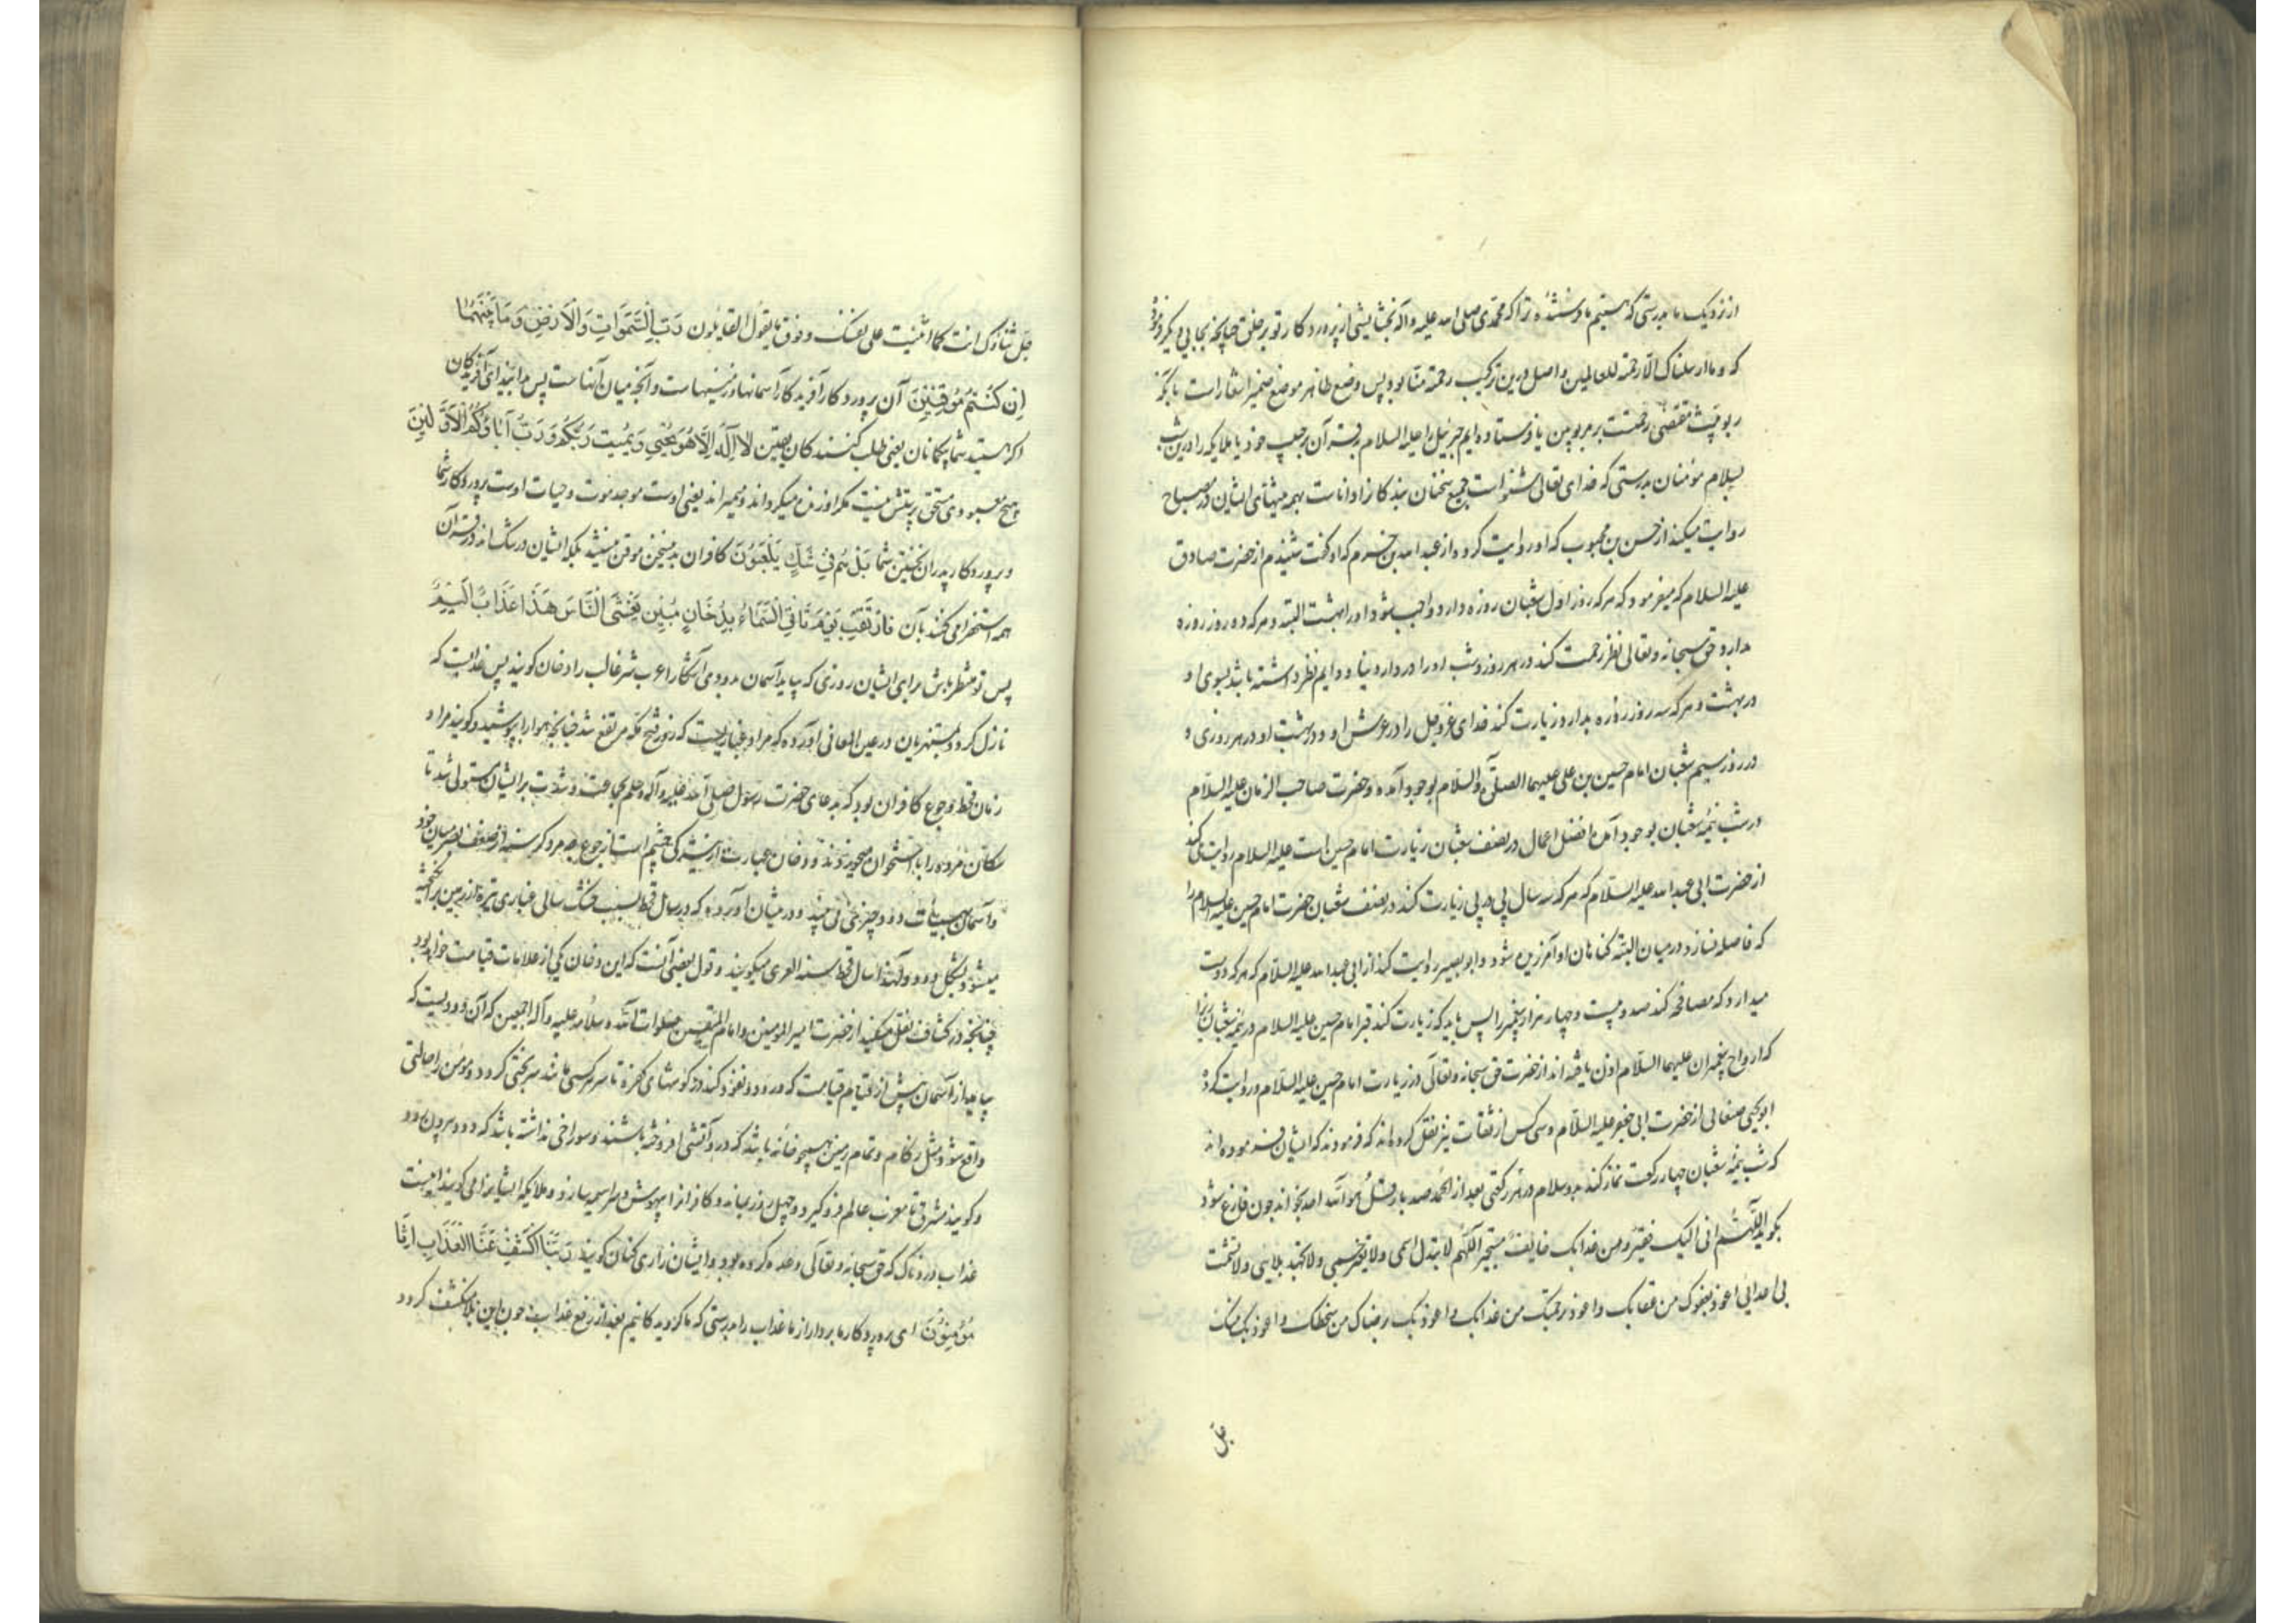 از نزدیک ما بدرستی که هستیم ما فرستنده ترا که محمدی صلی الله علیه و آله بخشایشی از پروردکار تو بر خلق چنانچه بجایی دیکر فرمود
که و ما ارسلناک الا رحمة للعالمین و اصل درین ترکیب رحمة منا بود پس وضع ظاهر موضع ضمیر اشعار است بآنکه
ربوبیت مقتضی رحمتست بر مربوبین یا فرستاده ایم جبرئیل را علیه السلام بقرآن بر حبیب خود یا ملایکه را درین شب
بسلام مؤمنان بدرستی که خدای تعالی شنواست جمیع سخنان بندکانرا داناست بهمه نیتهای ایشان در مصباح
روایت میکند از حسن بن محبوب که او روایت کرده از عبد الله بن حزم که او کفت شنیدم از حضرت صادق
علیه السلام که میفرمود که هر که روز اول شعبان روزه دارد واجب شود او را بهشت البته و هر که دو روز روزه
دارد حق سبحانه و تعالی نظر رحمت کند در هر روز و شب او را در دار دنیا و دایم نظر داشته باشد بسوی او
در بهشت و هر که سه روز روزه بدارد زیارت کند خدای عز و جل را در عرش او و در بهشت او در هر روزی و
در روز سیم شعبان امام حسین بن علی علیهما الصلوة و السلام بوجود آمده و حضرت صاحب الزمان علیه السلام
در شب نیمه شعبان بوجود آمده افضل اعمال در نصف شعبان زیارت امام حسین است علیه السلام روایت کند
از حضرت ابی عبد الله علیه السلام که هر که سه سال پی در پی زیارت کند در نصف شعبان حضرت امام حسین علیه السلام را
که فاصله نسازد در میان البته کناهان او آمرزیده شود و ابو بصیر روایت کند از ابی عبد الله علیه السلام که هر که دوست
میدارد که مصافحه کند صد و بیست و چهار هزار پیغمبر را پس باید که زیارت کند قبر امام حسین علیه السلام در نیمه شعبان زیرا
که ارواح پیغمبران علیهما السلام اذن یافته اند از حضرت حق سبحانه و تعالی در زیارت امام حسین علیه السلام و روایت کرد
ابو یحیی صنعانی از حضرت ابی جعفر علیه السلام و سی کس از ثقات نیز نقل کرده اند که فرمودند که ایشان فرموده اند
که شب نیمه شعبان چهار رکعت نماز کند بدو سلام در هر رکعتی بعد از الحمد صد بار قل هو الله احد بخواند چون فارغ شود
بکوید اللهم انی الیک فقیر و من عذابک خایف مستجیر اللهم لا تبدل اسمی و لا تغیر جسمی و لا تجهد بلایی و لا تشمت
بی اعدایی اعوذ بعفوک من عقابک و اعوذ برحمتک من عذابک و اعوذ بک رضاک من سخطک و اعوذ بک منک
جل
جل ثناؤک انت کما اثنیت علی نفسک و فوق ما یقول القایلون رَبِّ السَّمَوَاتِ وَالْاَرْضِ وَمَا بَيْنَهُمَا
اِنْ كُنْتُمْ مُوقِنِينَ آن پروردکار آفریدکار آسمانها و زمینهاست و آنچه میان آنهاست پس بدانید ای آفریدکان
اکر هستید شما بیکمانان یعنی طلب کنندکان یقین لَا اِلَهَ اِلَّا هُوَ يُحْيِي وَيُمِيتُ رَبُّكُمْ وَرَبُّ آبَائِكُمُ الْاَوَّلِينَ
هیچ معبودی مستحق پرستش نیست مکر او زنده میکرداند و میمیراند یعنی اوست موجد موت و حیات اوست پروردکار شما
و پروردکار پدران نخستین شما بَلْ هُمْ فِي شَكٍّ يَلْعَبُونَ کافران بدین سخن موقن نیستند بلکه ایشان در شک اند در قرآن
همه استهزا می کنند بآن فَارْتَقِبْ يَوْمَ تَأْتِي السَّمَاءُ بِدُخَانٍ مُبِينٍ يَغْشَى النَّاسَ هَذَا عَذَابٌ اَلِيمٌ
پس تو منتظر باش برای ایشان روزی که بیاید آسمان بدودی آشکارا عرب شر غالب را دخان کویند پس عذابیست که
نازل کردد بمستهزیان در عین المعانی آورده که مراد غباریست که روز فتح مکه مرتفع شد چنانچه هوا را بپوشید و کویند مراد
زمان قحط و جوع کافران بود که بدعای حضرت رسول صلی الله علیه و آله و سلم مجاعت و شدت بر ایشان مستولی شد تا
سکان مرده را با استخوان میخوردند و دخان عبارت از تیرکی چشم است از جوع چه مرد کرسنه از ضعف بصر میان خود
و آسمان بهیئات دود چیزی می بیند و در میان آورده که در سال قحط بسبب خشک سالی غباری تیره از زمین برانکیخته
میشود بشکل دود و لهذا سال قحط را سنة الغبری میکویند و قول بعضی آنست که این دخان یکی از علامات قیامت خواهد بود
چنانچه در کشاف نقل میکند از حضرت امیر المومنین و امام المتقین صلوات الله و سلامه علیه و آله اجمعین که آن دودیست که
بیاید از آسمان پیش از قیام قیامت که در رود و نفوذ کند در کوشهای کفره تا سر هر کسی مانند سر بختی کردد و مؤمن را حالتی
واقع شود مثل زکام و تمام زمین همچو خانه باشد که درو آتشی افروخته باشند و سوراخی نداشته باشد که دود بیرون رود
و کویند مشرق تا مغرب عالم فرو کیرد و چهل روز بماند و کافرانرا بیهوش و سراسیمه سازد و ملایکه ایشانرا می کویند اینست
عذاب دردناک که حق سبحانه و تعالی وعده کرده بود و ایشان زاری کنان کویند رَبَّنَا اكْشِفْ عَنَّا الْعَذَابَ اِنَّا
مُؤْمِنُونَ ای پروردکار ما بردار از ما عذاب را بدرستی که ما کرویدکانیم بعد از رفع عذاب چون این بلا منکشف کردد